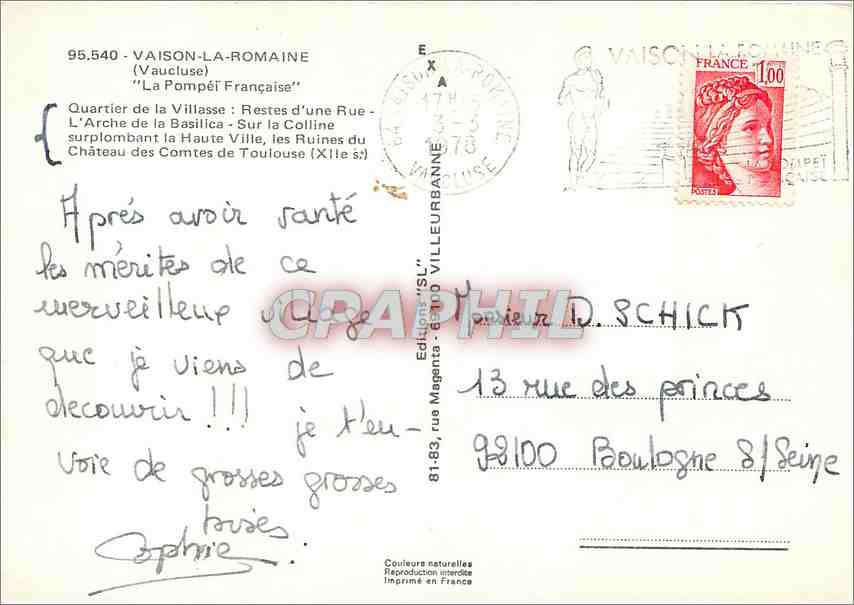 95.540 - VAISON-LA-ROMAINE
(Vaucluse)
"La Pompéï Française"
Quartier de la Villasse : Restes d'une Rue -
L'Arche de la Basilica - Sur la Colline
surplombant la Haute Ville, les Ruines du
Château des Comtes de Toulouse (XIIe s.)
Aprés avoir vanté
les mérites de ce
merveilleux village
que je viens de
decouvrir !!! je t'en-
voie de grosses grosses
bises
Sophie.
EXA
Editions "SL"
81-83, rue Magenta - 69100 VILLEURBANNE
84 VAISON-LA-ROMAINE
17H
3-3
1978
VAUCLUSE
VAISON LA ROMAINE
LA POMPEÏ
FRANÇAISE
FRANCE
1,00
POSTES
CPAPHIL
Monsieur D. SCHICK
13 rue des princes
92100 Boulogne S/Seine
Couleurs naturelles
Reproduction interdite
Imprimé en France